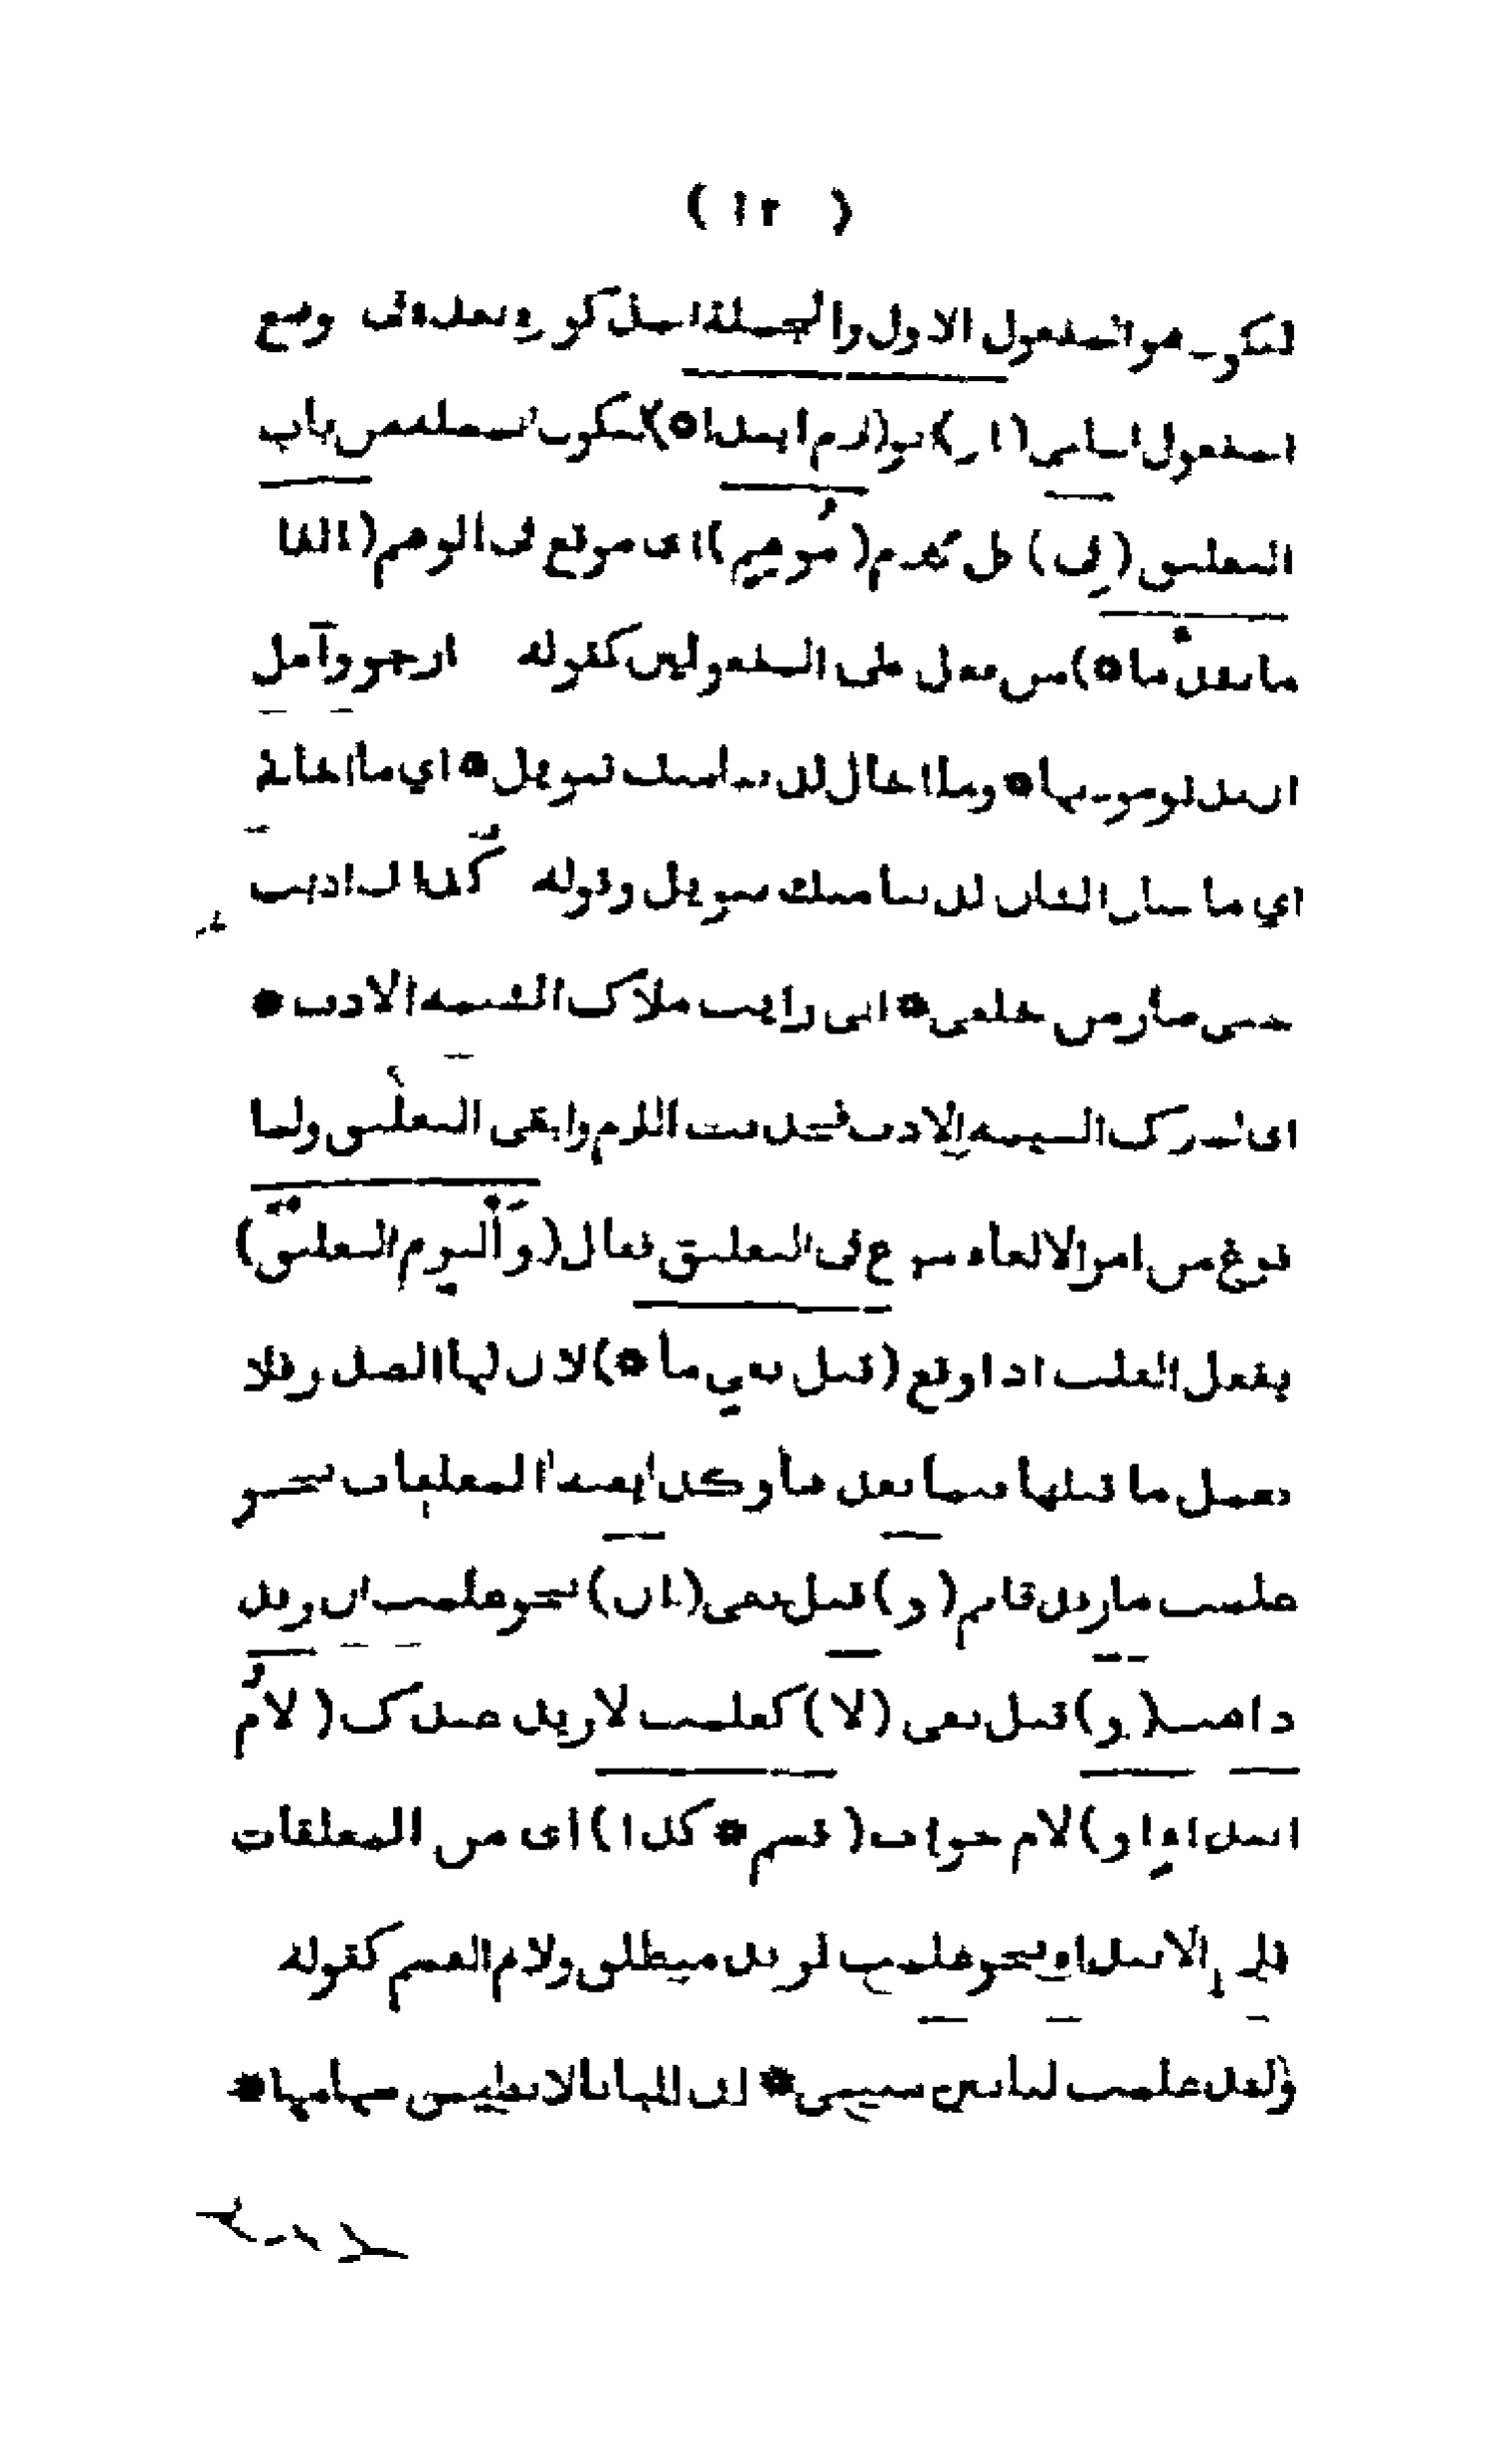 ( ١٢ )
ليكون هو المفعول الاول والجملة المذكورة بعده في وضع
المفعول الثاني (او) نو (لام ابتدا *) لتكون المسئلة من باب
التعليق (في) كل كلام (مُوهِم) اي موقع في الوهم (الغا
ما تقدما *) من فعل على المفعولين كقوله ارجو وآمل
ان تدنو مودتها * وما اخال لدينا منك تنويل * اي ما اخاله
اي ما شان الشان لدينا منك تنويل وقوله كذاك ادبت
حتى صار من خلقي * اني رايت ملاك الشيمة الادب *
اي لملاك الشيمة الادب فحذفت اللام وابقى التعليق ولما
فرغ من امر الالغاء شرع في التعليق فقال (وَالْتُزِم التعليق)
بفعل القلب اذا وقع (قبل نفي ما *) لان لها الصدر فلا
يعمل ما قبلها فيما بعدها وكذا بقية المعلقات نحو
علمت ما زيد قائم (و) قبل نفي (ان) نحو علمت ان زيد
ذاهب (و) قبل نفي (لا) كعلمت لا زيد عندك (لامُ
ابتداءٍ او) لام جواب (قسم * كذا) اي من المعلقات
فلام الابتداء نحو علمت لزيد منطلق ولام القسم كقوله
ولقد علمت لتاتين منيتي * ان المنايا لا تطيش سهامها *